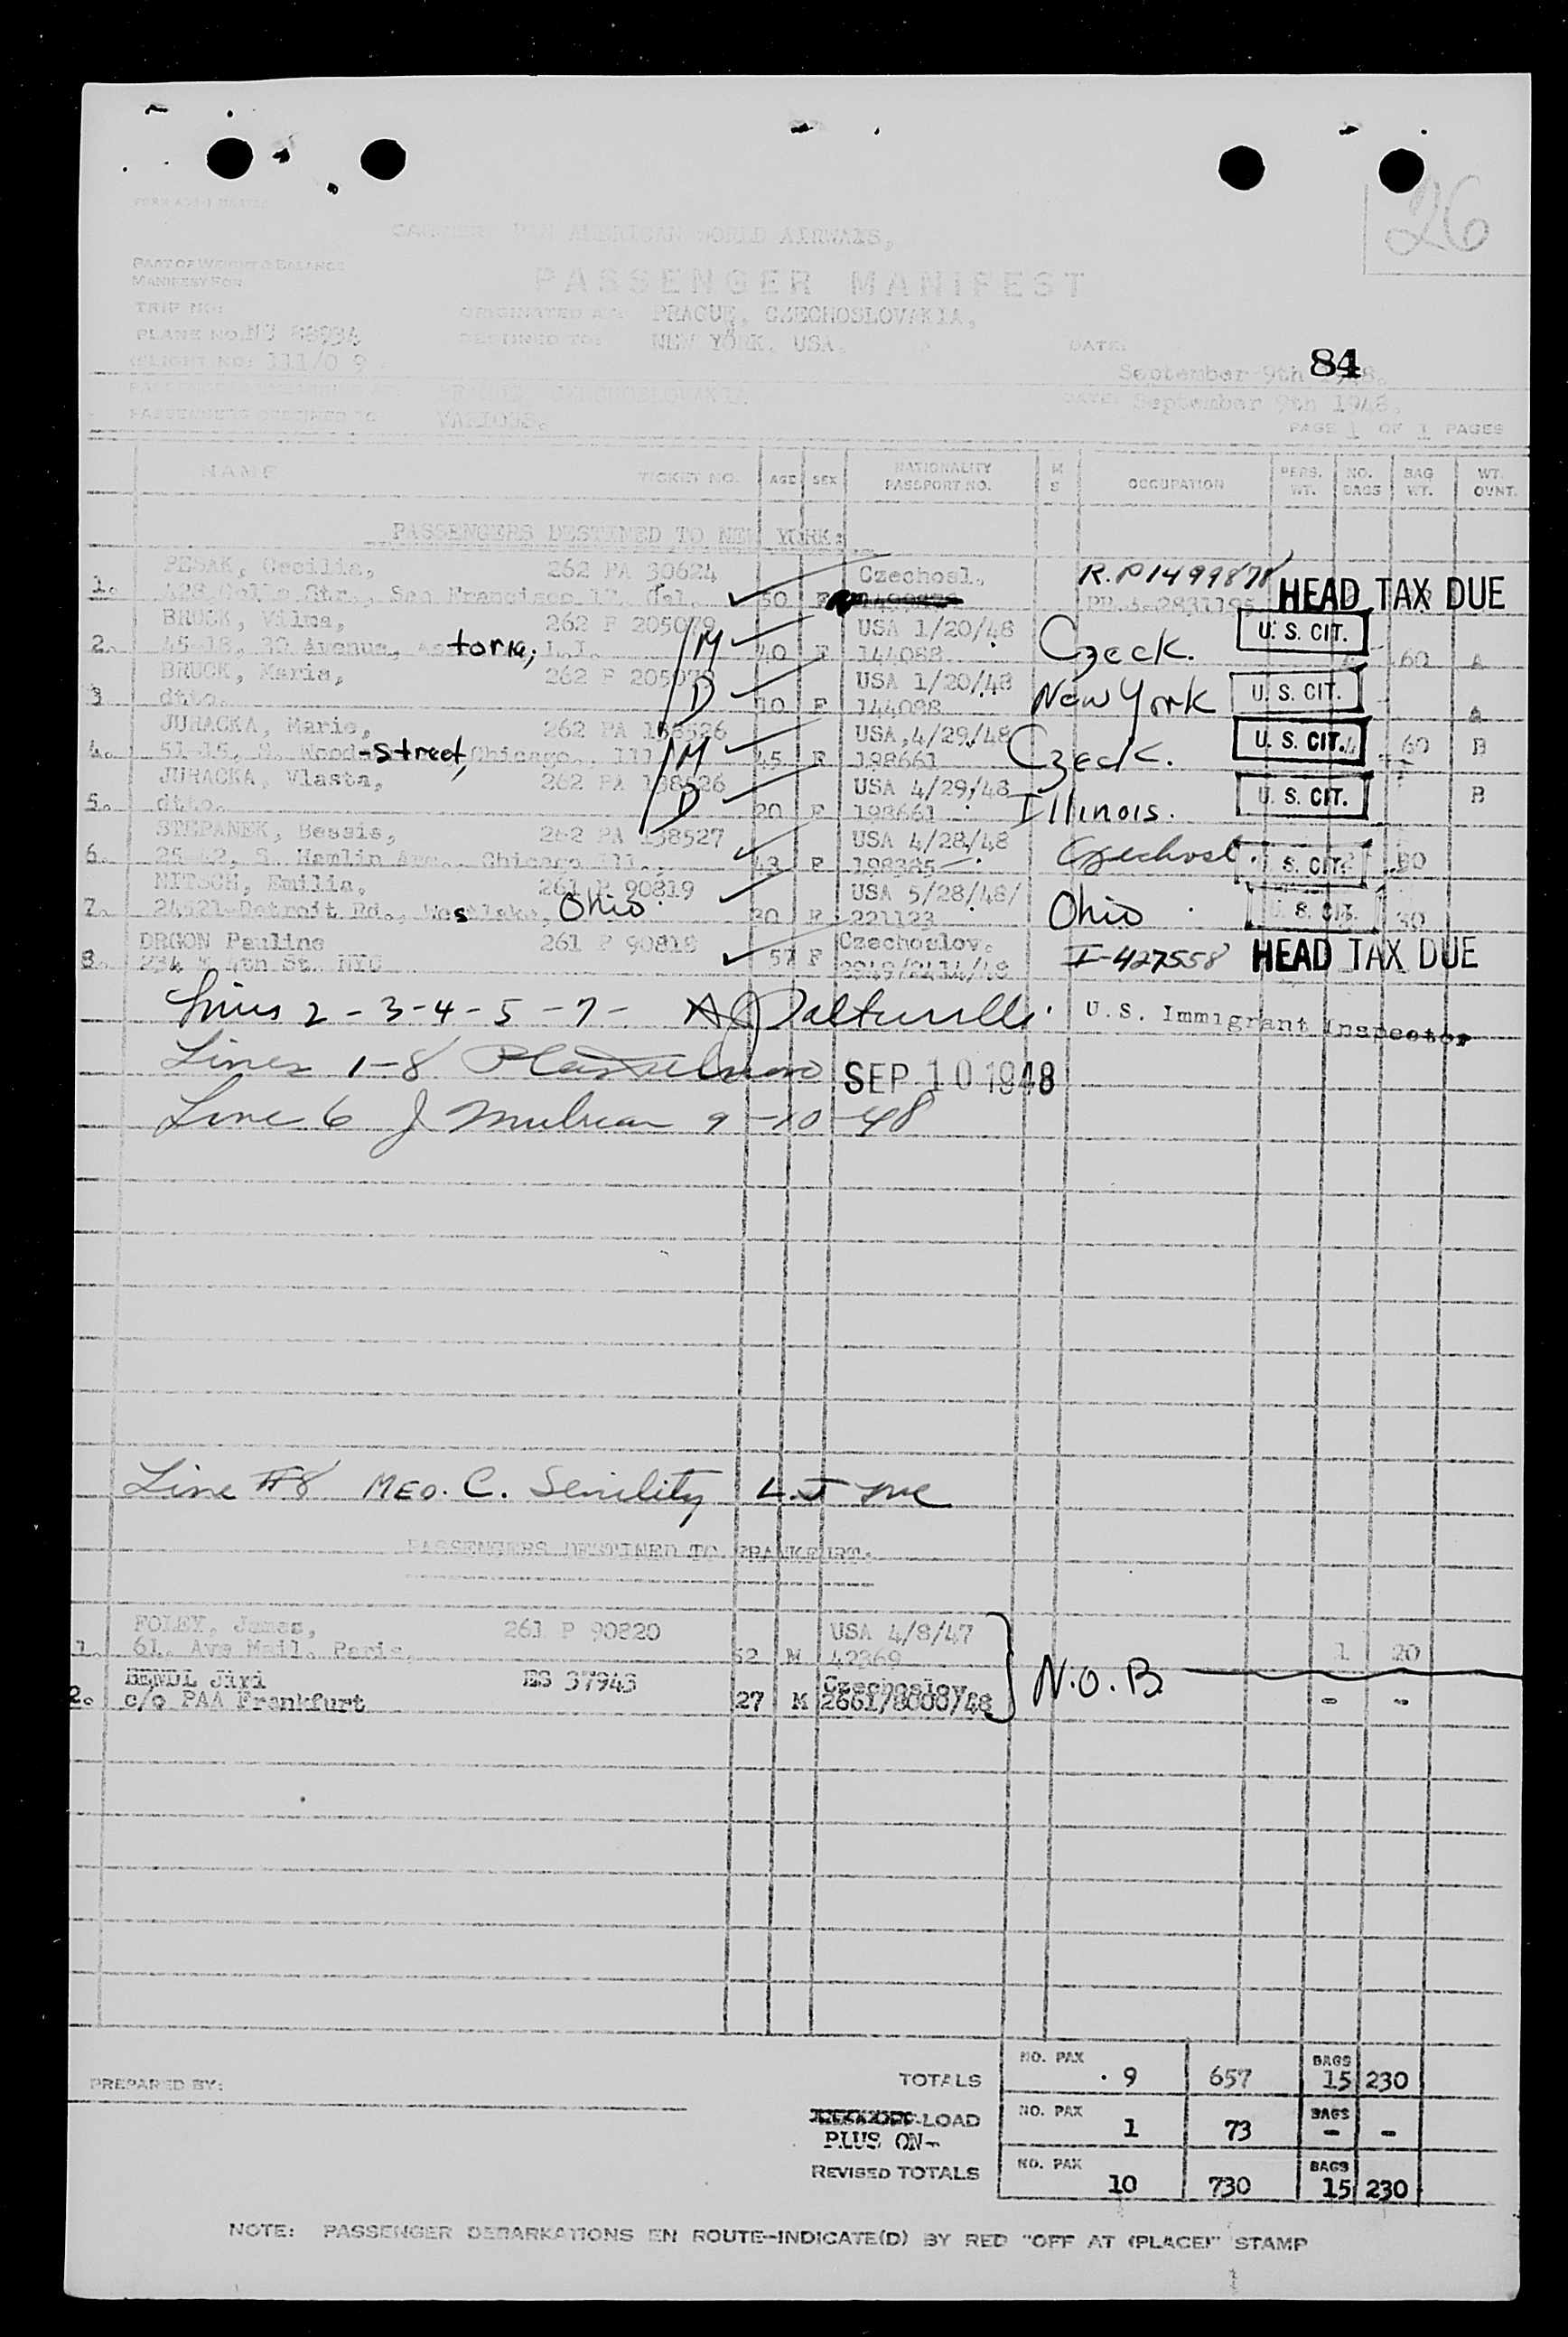 26
CARRIER: PAN AMERICAN WORLD AIRWAYS,
PART OF WEIGHT & BALANCE
MANIFEST FOR
PASSENGER MANIFEST
TRIP NO:
ORIGINATED AT: PRAGUE, CZECHOSLOVAKIA,
PLANE NO. 88934
DESTINED TO: NEW YORK, USA.
DATE:
84
FLIGHT NO: 111/0 9
September 9th 1948.
PRAGUE, CZECHOSLOVAKIA
DATE: September 9th 1948.
PASSENGERS DESTINED TO VARIOUS.
PAGE 1 OF 1 PAGES
NAME TICKET NO. AGE SEX NATIONALITY PASSPORT NO. M S OCCUPATION PERS. WT. NO. BAGS BAG WT. WT. OVNT.
PASSENGERS DESTINED TO NEW YORK:
PESAK, Cecilia, 262 PA 30624 Czechosl. R.P1499878
1. San Francisco Cal. F HEAD TAX DUE
BRUCK, Vilma, 262 F 205079 USA 1/20/48
2. 45-18, 30 Avenue, Astoria, L.I. M 40 F 144088 Czeck. U. S. CIT. 60 A
BRUCK, Maria, 262 F 205079 USA 1/20/48
3 dtto. D 10 F 144088 New York U. S. CIT. A
JURACKA, Marie, 262 PA 138526 USA, 4/29/48
4. 51-15, S. Wood-street, Chicago, Ill. M 45 F 198661 Czeck. U. S. CIT. 60 B
JURACKA, Vlasta, 262 PA 138526 USA 4/29/48
5. dtto. D 20 F 198661 Illinois. U. S. CIT. B
STEPANEK, Bessie, 262 PA 138527 USA 4/28/48
6. S. Hamlin Ave., Chicago Ill. 43 F 198385 Czechosl. S. CIT.
NITSCH, Emilia, 261 P 90819 USA 5/28/48/
7. 24521-Detroit Rd., Westlake, Ohio. 30 F 221123 Ohio U. S. CIT. 30
DRGON Pauline 261 P 90818 Czechoslov.
8. 234 E 4th St. NYC 57 F 2949/2414/48 I-427558 HEAD TAX DUE
Lines 2 - 3-4-5-7- U.S. Immigrant Inspector
Lines 1-8 SEP 10 1948
Line 6 J 9-10-48
Line #8 MED. C. Senility
PASSENGERS DESTINED TO FRANKFURT.
FOLEY, James, 261 P 90820 USA 4/8/47
1. 61. Ave Mail. Paris, 52 M 42369 1 20
BENDL Jiri ES 37943 Czechoslov.
2. c/o PAA Frankfurt 27 M 2661/8000/48 N.O.B. - -
TOTALS NO. PAX 9 657 BAGS 15 230
PREPARED BY:
-LOAD NO. PAX 1 73 BAGS - -
PLUS ON-
REVISED TOTALS NO. PAX 10 730 BAGS 15 230
NOTE: PASSENGER DEBARKATIONS EN ROUTE-INDICATE(D) BY RED "OFF AT (PLACE)" STAMP